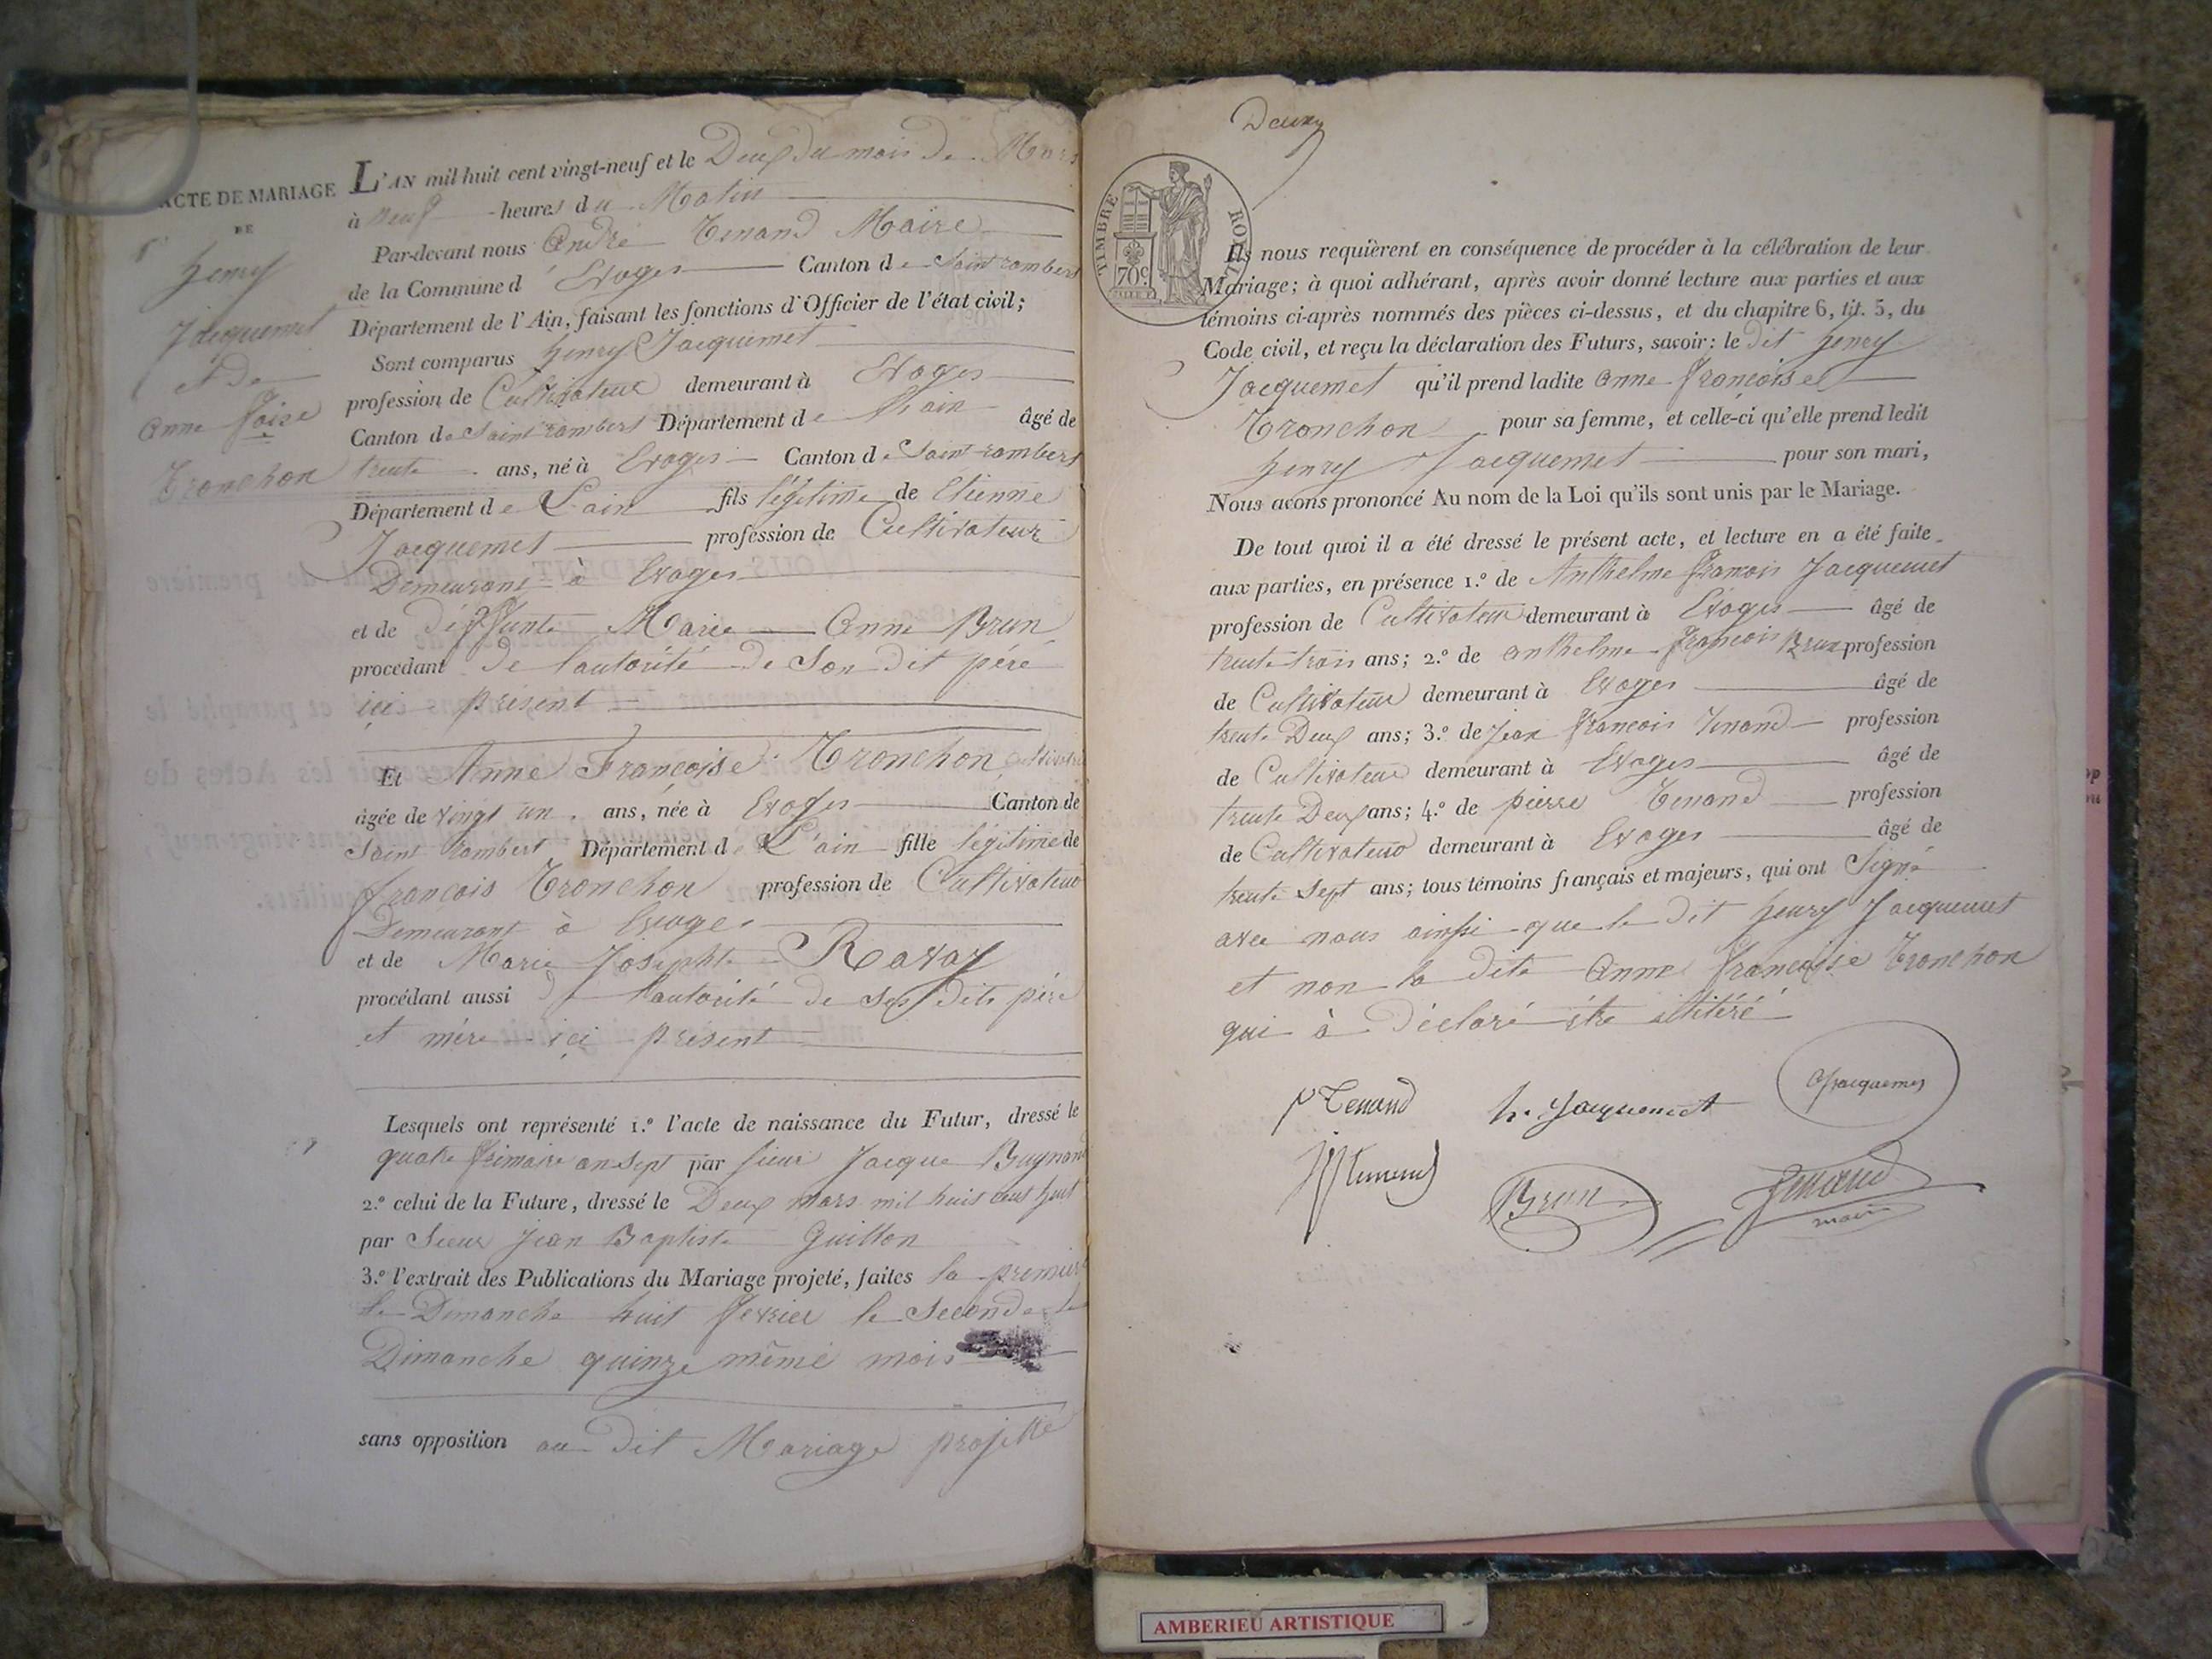 ACTE DE MARIAGE
DE
henry
Jacquemet
et de
Anne foise
Tronchon
L'AN mil huit cent vingt-neuf et le Deux du mois de Mars
à neuf heures du Matin
Par-devant nous André Tenand Maire
de la Commune d'Evoges Canton de Saint rambert
Département de l'Ain, faisant les fonctions d'Officier de l'état civil;
Sont comparus henry Jacquemet
profession de Cultivateur demeurant à Evoges
Canton de Saint rambert Département de l'ain âgé de
trente ans, né à Evoges Canton de Saint rambert
Département de L'ain fils légitime de Etienne
Jacquemet profession de Cultivateur
Demeurant à Evoges
et de déffunte Marie Anne Brun
procédant de l'autorité de Son dit péré
ici présent
Et Anne Françoise Tronchon
âgée de vingt un ans, née à Evoges Canton de
Saint Rambert Département de L'ain fille légitime de
françois Tronchon profession de Cultivateur
Demeurant à Evoges
et de Marie Josephte Ravay
procédant aussi de l'autorité de Ses dits pére
et mére ici présent
Lesquels ont représenté 1.º l'acte de naissance du Futur, dressé le
quatre frimaire an Sept par sieur Jacque Bugnand
2.º celui de la Future, dressé le Deux mars mil huit cent huit
par Sieur Jean Baptiste Guillon
3.º l'extrait des Publications du Mariage projeté, faites la premiere
le Dimanche huit fevrier la Seconde le
Dimanche quinze même mois
sans opposition au dit Mariage projetté
Deux
TIMBRE ROYAL
70c
Ils nous requièrent en conséquence de procéder à la célébration de leur
Mariage; à quoi adhérant, après avoir donné lecture aux parties et aux
témoins ci-après nommés des pièces ci-dessus, et du chapitre 6, tit. 5, du
Code civil, et reçu la déclaration des Futurs, savoir: le dit henry
Jacquemet qu'il prend ladite Anne françoise
Tronchon pour sa femme, et celle-ci qu'elle prend ledit
henry Jacquemet pour son mari,
Nous avons prononcé Au nom de la Loi qu'ils sont unis par le Mariage.
De tout quoi il a été dressé le présent acte, et lecture en a été faite
aux parties, en présence 1.º de Anthelme françois Jacquemet
profession de Cultivateur demeurant à Evoges âgé de
trente trois ans; 2.º de anthelme françois Brun profession
de Cultivateur demeurant à Evoges âgé de
trente Deux ans; 3.º de Jean françois Tenand profession
de Cultivateur demeurant à Evoges âgé de
trente Deux ans; 4.º de pierre Tenand profession
de Cultivateur demeurant à Evoges âgé de
trente Sept ans; tous témoins français et majeurs, qui ont Signé
avec nous ainssi que le dit henry Jacquemet
et non la dite Anne françoise Tronchon
qui à déclaré être illitéré
p Tenand h. Jacquemet Jacquemet
Brun Tenand
maire
AMBERIEU ARTISTIQUE